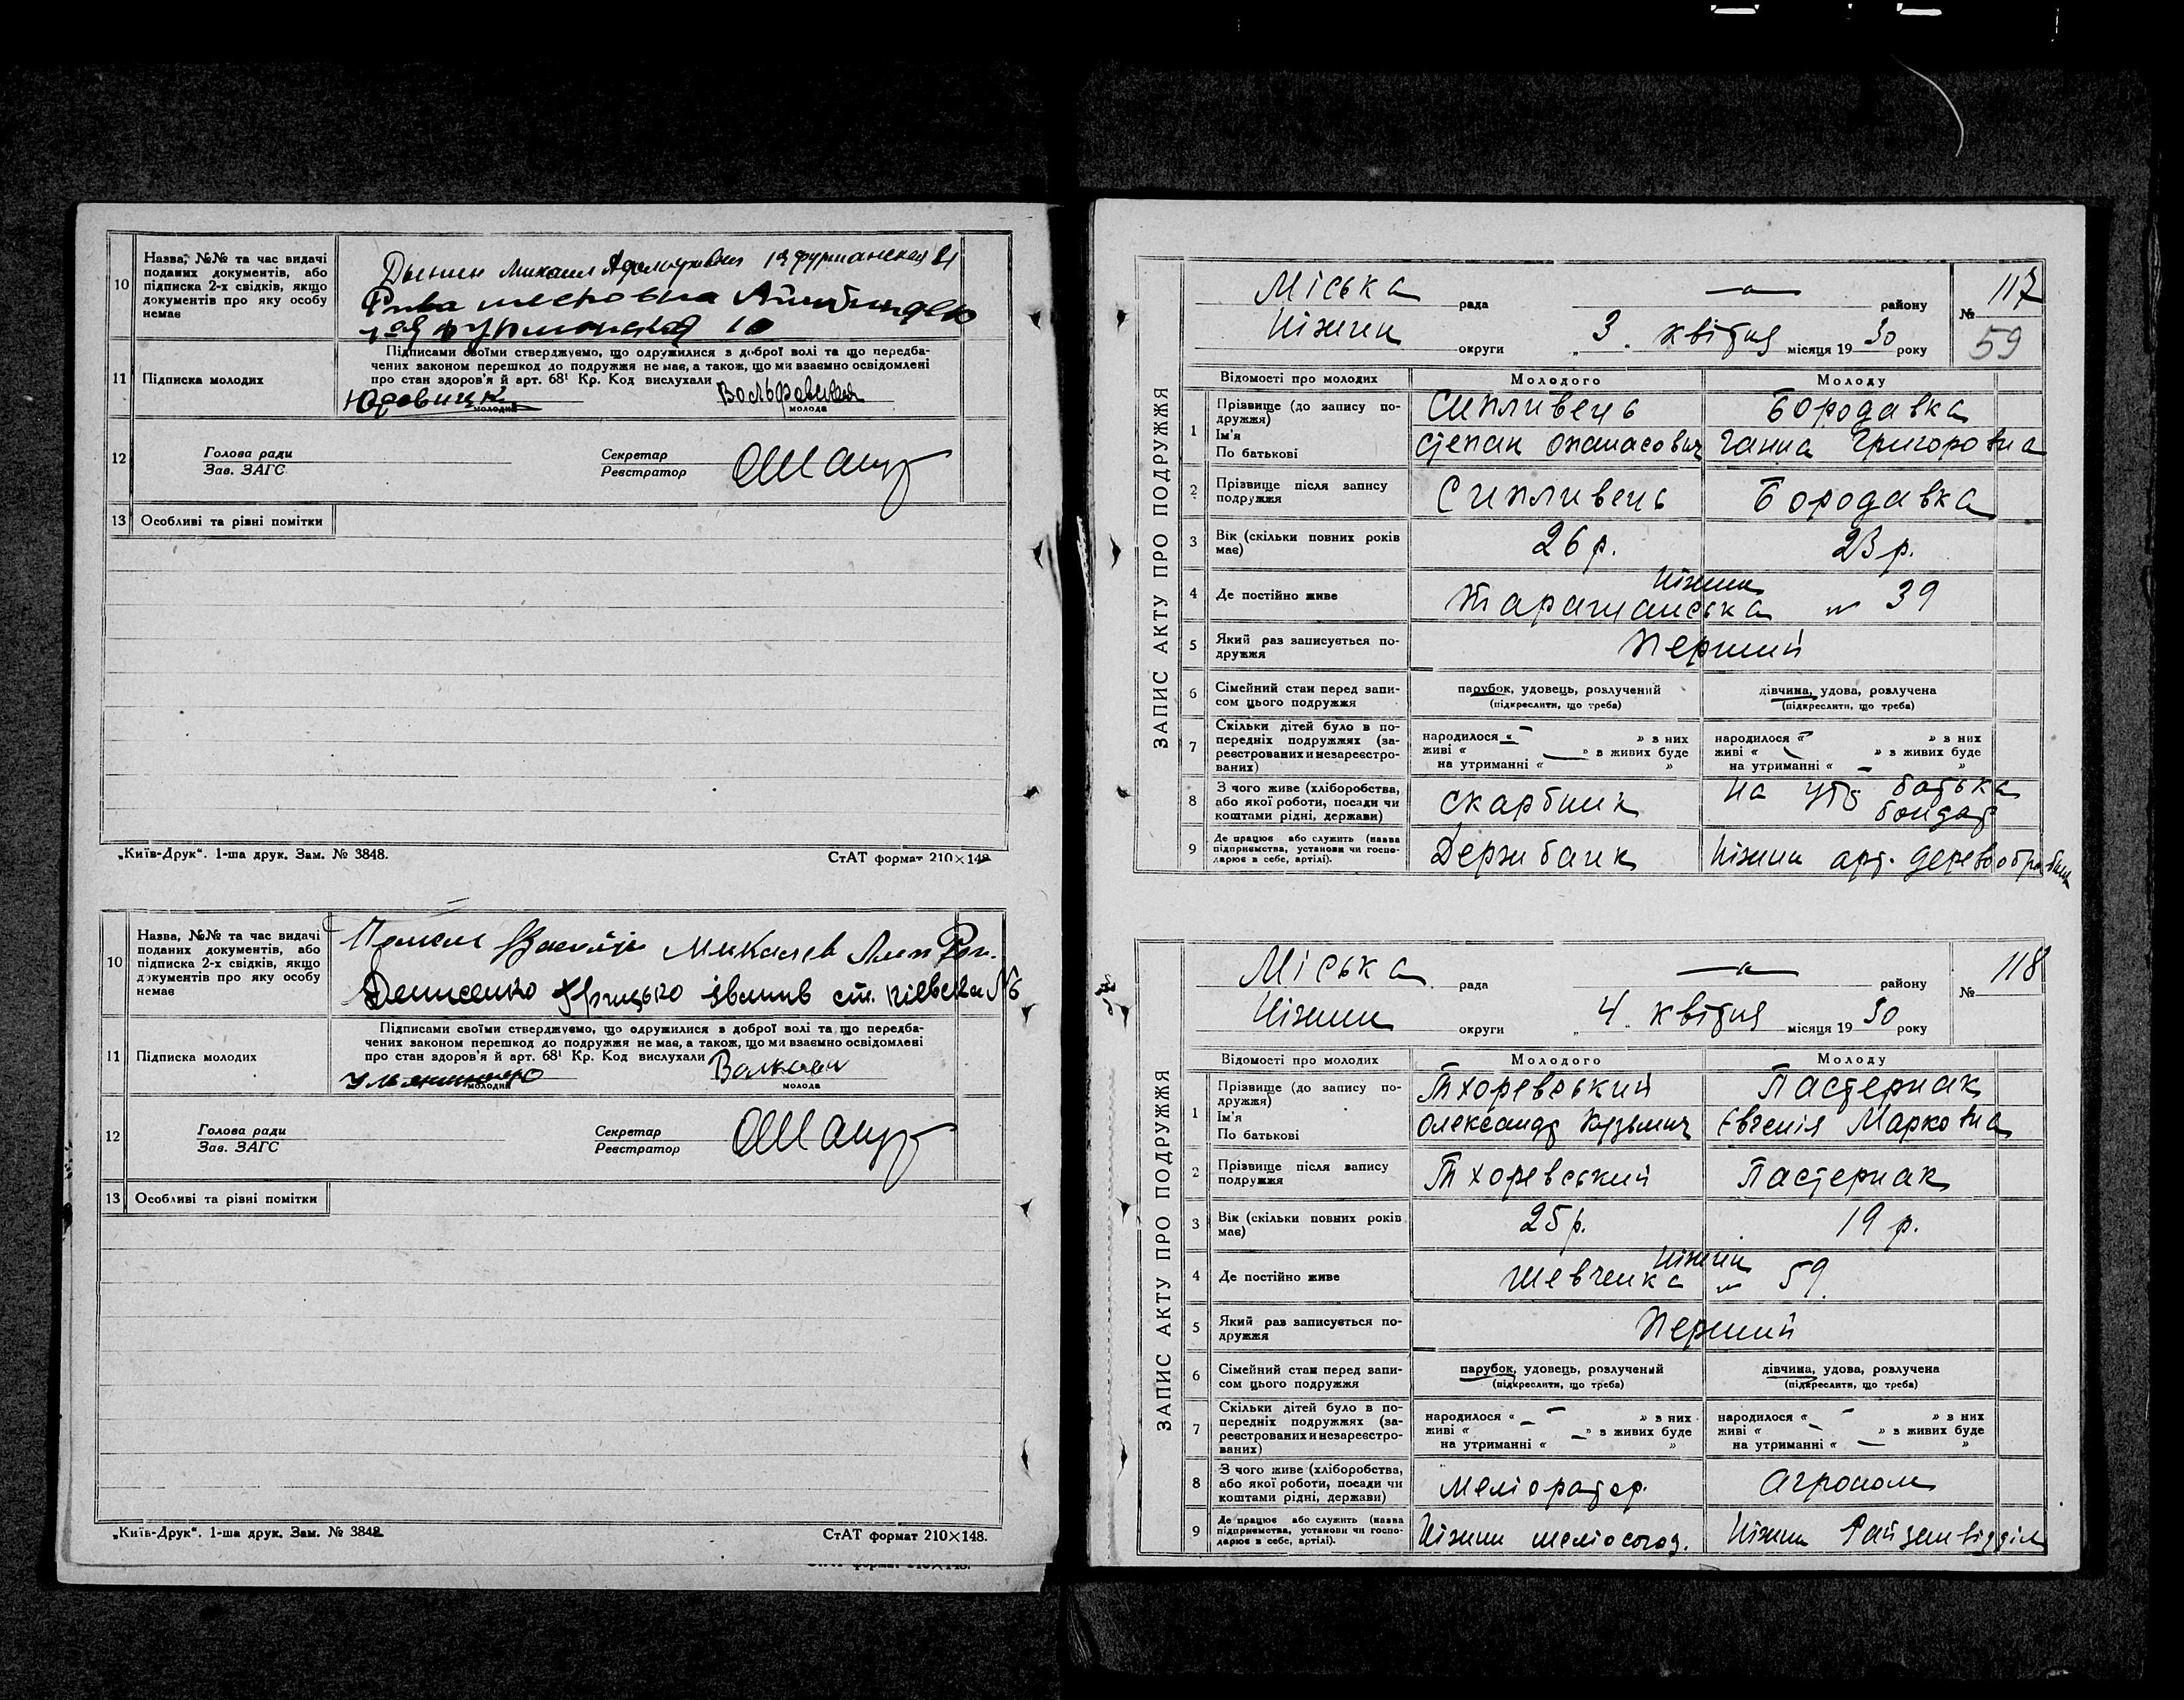 10
Назва, №№ та час видачі
поданих документів, або
підписка 2-х свідків, якщо
документів про яку особу
немає
Дынин Михаил 1я фурманская 21
Рива
1ая фурманская 10
11
Підписка молодих
Підписами своїми стверджуємо, що одружилися з доброї волі та що передба-
чених законом перешкод до подружжя не має, а також, що ми взаємно освідомлені
про стан здоров'я й арт. 68¹ Кр. Код вислухали
молодий
молода
12
Голова ради
Зав. ЗАГС
Секретар
Реєстратор
13 Особливі та різні помітки
„Київ-Друк". 1-ша друк. Зам. № 3848.
СтАТ формат 210×148
10
Назва, №№ та час видачі
поданих документів, або
підписка 2-х свідків, якщо
документів про яку особу
немає
Денисенко Грицько Іванів ст. Київська №6
11
Підписка молодих
Підписами своїми стверджуємо, що одружилися з доброї волі та що передба-
чених законом перешкод до подружжя не має, а також, що ми взаємно освідомлені
про стан здоров'я й арт. 68¹ Кр. Код вислухали
молодий
молода
12
Голова ради
Зав. ЗАГС
Секретар
Реєстратор
13 Особливі та різні помітки
„Київ-Друк". 1-ша друк. Зам. № 3848
СтАТ формат 210×148.
СтАТ формат 210×148.
ЗАПИС АКТУ ПРО ПОДРУЖЖЯ
Міська рада — району
№ 117
Ніжин округи „3" квітня місяця 1930 року
59
Відомості про молодих Молодого Молоду
1 Прізвище (до запису по-
дружжя)
Ім'я
По батькові
Сипливець Бородавка
Степан Опанасович Ганна Григоровна
2 Прізвище після запису
подружжя
Сипливець Бородавка
3 Вік (скільки повних років
має)
26 р. 23 р.
4 Де постійно живе
Ніжин
Таращанська № 39
5 Який раз записується по-
дружжя
Перший
6 Сімейний стан перед запи-
сом цього подружжя
парубок, удовець, розлучений
(підкреслити, що треба)
дівчина, удова, розлучена
(підкреслити, що треба)
7 Скільки дітей було в по-
передніх подружжях (за-
реєстрованих и незареєстро-
ваних)
народилося « — » з них
живі « — » з живих буде
на утриманні « »
народилося « — » з них
живі « — » з живих буде
на утриманні « — »
8 З чого живе (хліборобства,
або якої роботи, посади чи
коштами рідні, держави)
скарбник
на утр батька
бондар
9 Де працює або служить (назва
підприємства, установи чи госпо-
дарює в себе, артілі).
Держбанк
Ніжин арт.
ЗАПИС АКТУ ПРО ПОДРУЖЖЯ
Міська рада — району
№ 118
Ніжин округи „4" квітня місяця 1930 року
Відомості про молодих Молодого Молоду
1 Прізвище (до запису по-
дружжя)
Ім'я
По батькові
Тхоревський Пастернак
Олександр Кузьмич Євгенія Марковна
2 Прізвище після запису
подружжя
Тхоревський Пастернак
3 Вік (скільки повних років
має)
25 р. 19 р.
4 Де постійно живе
Ніжин
Шевченка № 59
5 Який раз записується по-
дружжя
Перший
6 Сімейний стан перед запи-
сом цього подружжя
парубок, удовець, розлучений
(підкреслити, що треба)
дівчина, удова, розлучена
(підкреслити, що треба)
7 Скільки дітей було в по-
передніх подружжях (за-
реєстрованих и незареєстро-
ваних)
народилося « — » з них
живі « — » з живих буде
на утриманні « »
народилося « — » з них
живі « — » з живих буде
на утриманні « — »
8 З чого живе (хліборобства,
або якої роботи, посади чи
коштами рідні, держави)
меліоратор. Агроном
9 Де працює або служить (назва
підприємства, установи чи госпо-
дарює в себе, артілі).
Ніжин Ніжин Райземвідділ